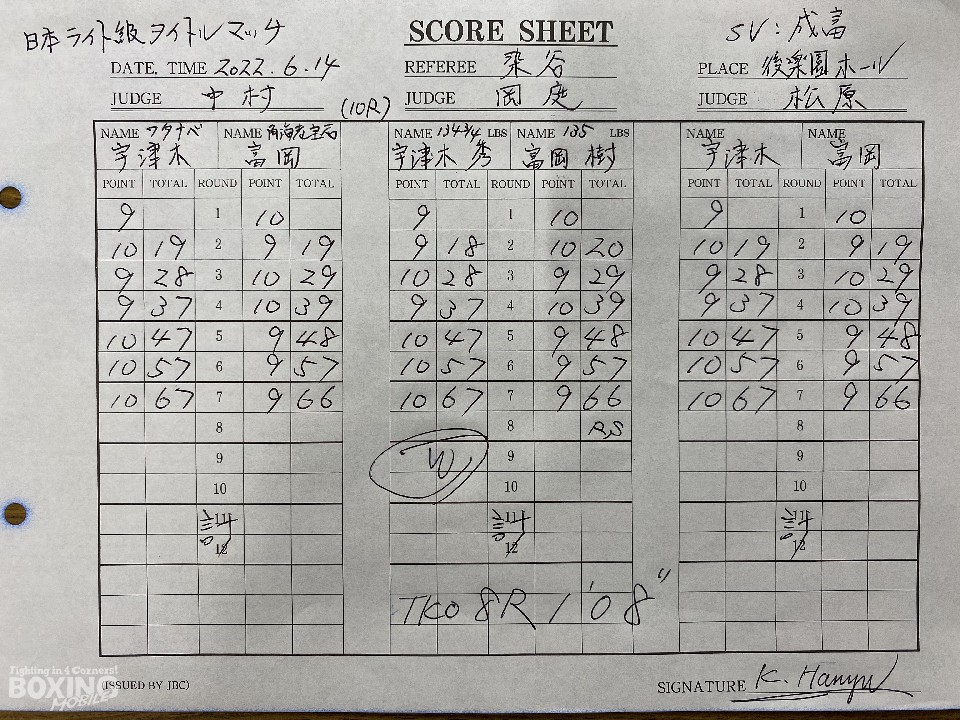 日本ライト級タイトルマッチ SCORE SHEET SV:成富
DATE, TIME 2022.6.14 REFEREE 染谷 PLACE 後楽園ホール
JUDGE 中村 (10R) JUDGE 岡庭 JUDGE 松原
NAME ワタナベ NAME 角海老宝石 NAME 134 3/4 LBS NAME 135 LBS NAME NAME
宇津木 富岡 宇津木 秀 富岡 樹 宇津木 富岡
POINT TOTAL ROUND POINT TOTAL POINT TOTAL ROUND POINT TOTAL POINT TOTAL ROUND POINT TOTAL
9 1 10 9 1 10 9 1 10
10 19 2 9 19 9 18 2 10 20 10 19 2 9 19
9 28 3 10 29 10 28 3 9 29 9 28 3 10 29
9 37 4 10 39 9 37 4 10 39 9 37 4 10 39
10 47 5 9 48 10 47 5 9 48 10 47 5 9 48
10 57 6 9 57 10 57 6 9 57 10 57 6 9 57
10 67 7 9 66 10 67 7 9 66 10 67 7 9 66
8 8 RS 8
9 W 9 9
10 10 10
11 11 11
12 12 12
TKO 8R 1'08"
Fighting in 4 Corners!
BOXING
MOBILE
(ISSUED BY JBC) SIGNATURE K. Hanyu